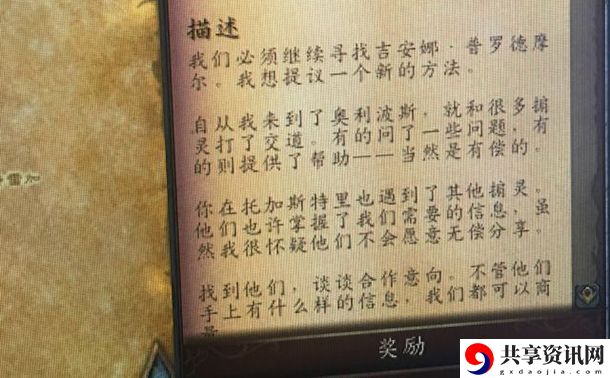 描述
我们必须继续寻找吉安娜·普罗德摩
尔。我想提议一个新的方法。
自从我来到了奥利波斯，就和很多掮
灵打了交道。有的问了一些问题，有
的则提供了帮助——当然是有偿的。
你在托加斯特里也遇到了其他掮灵。
他们也许掌握了我们需要的信息，虽
然我很怀疑他们不会愿意无偿分享。
找到他们，谈谈合作意向。不管他们
手上有什么样的信息，我们都可以商
奖励
共享资讯网
gxdaojia.com